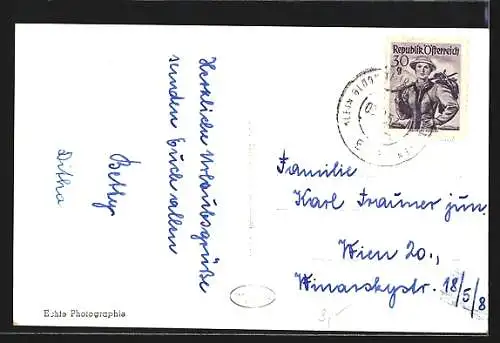 Herzliche Urlaubsgrüße
senden Euch allen
Betty
Ditha
Echte Photographie
Republik Österreich
30
KLEIN
Familie
Karl Trauner jun.
Wien 20.,
Winarskystr. 18/5/8
3,-